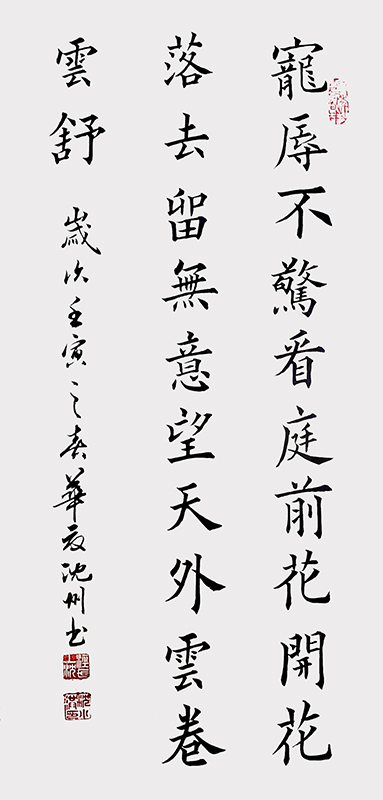 寵辱不驚看庭前花開花
落去留無意望天外雲卷
雲舒 歲次壬寅之春華夏沈州書